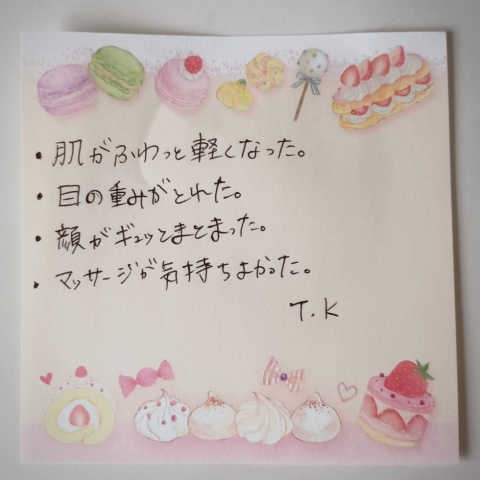 ・肌がふわっと軽くなった。
・目の重みがとれた。
・顔がギュッとまとまった。
・マッサージが気持ちよかった。
T.K